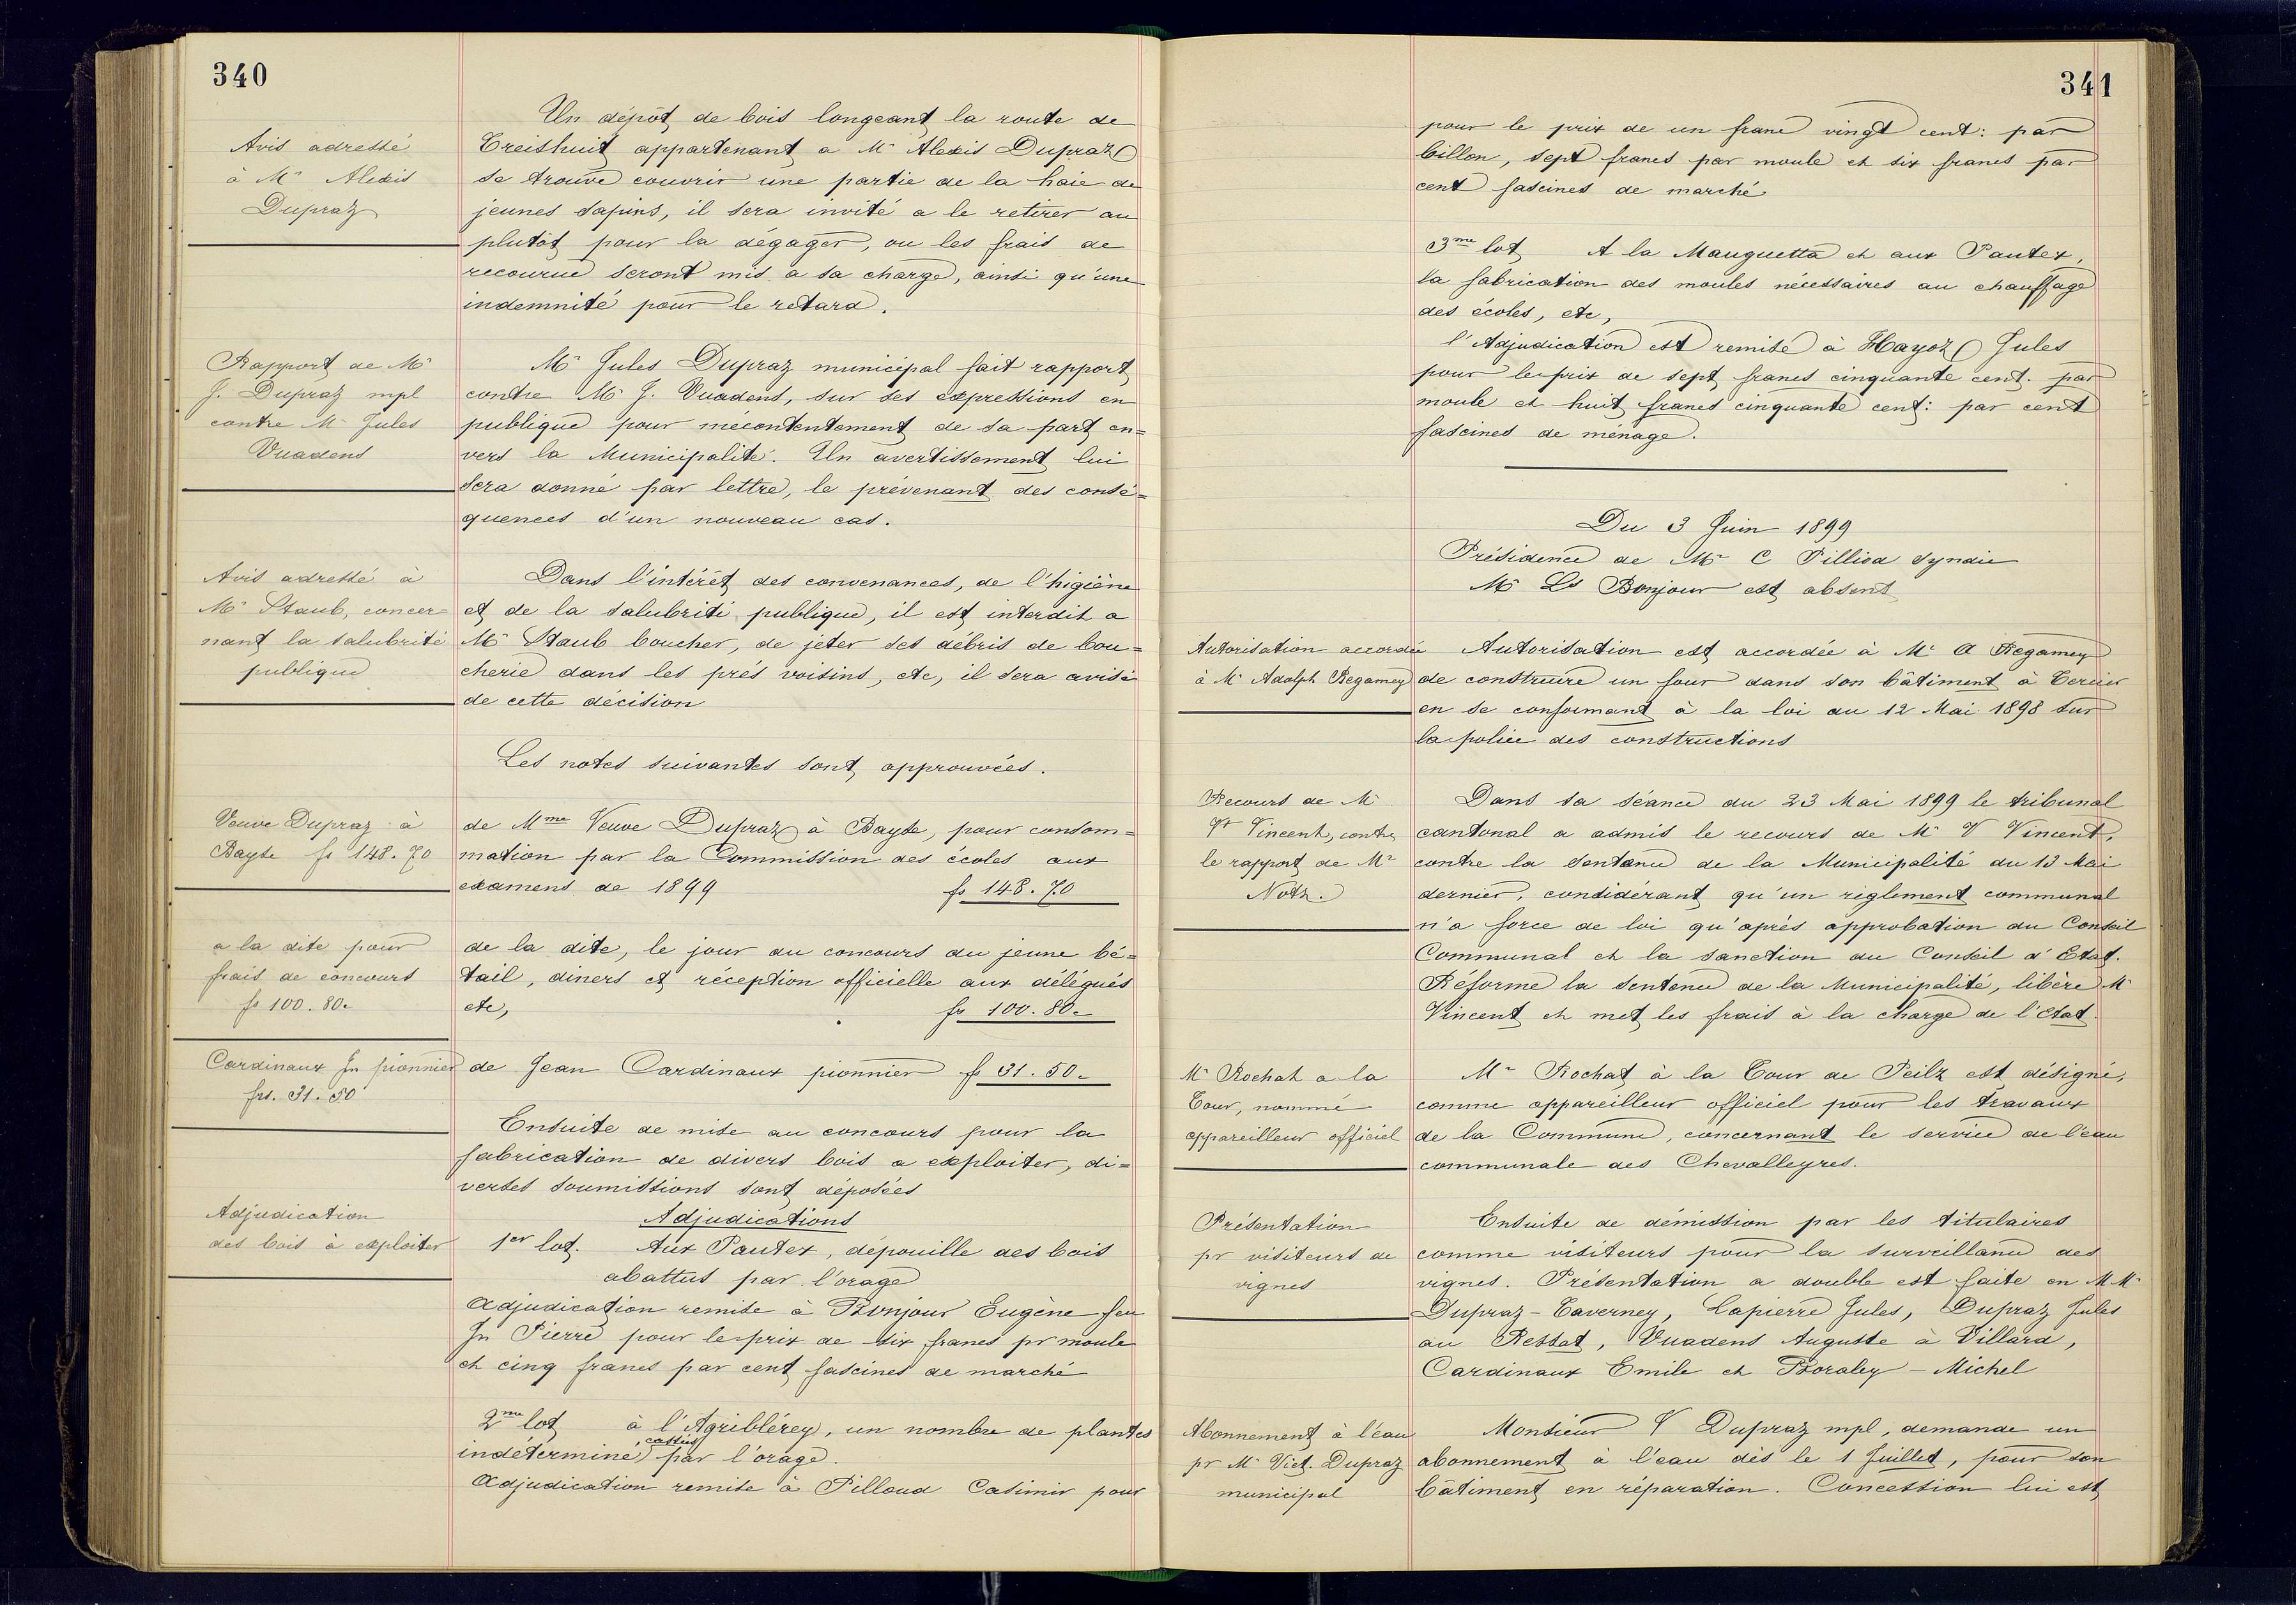 340
Un dépôt de bois longeant la route de
Avis adressé
à Mr Alexis
Dupraz
Treishuit appartenant a Mr Alexis Dupraz
se trouve couvrir une partie de la haie de
jeunes sapins, il sera invité a le retirer au
plutôt pour la dégager, ou les frais de
recourue seront mis a sa charge, ainsi qu'une
indemnité pour le retard.
Rapport de Mr
J. Dupraz mpl
contre Mr Jules
Vuadens
Mr Jules Dupraz municipal fait rapport
contre Mr J. Vuadens, sur ses expressions en
publique pour mécontentement de sa part en=
vers la Municipalité. Un avertissement lui
sera donné par lettre, le prévenant des consé=
quences d'un nouveau cas.
Avis adressé à
Mr Staub, concer=
nant la salubrité
publique
Dans l'intérêt des convenances, de l'higiène
et de la salubrité publique, il est interdit a
Mr Staub boucher, de jeter ses débris de bou=
cherie dans les prés voisins, etc, il sera avisé
de cette décision
Les notes suivantes sont approuvées.
Veuve Dupraz à
Bayse fs 148.70
de Mme Veuve Dupraz à Bayse, pour consom=
mation par la Commission des écoles aux
examens de 1899 fs 148.70
a la dite pour
frais de concours
fs 100.80.
de la dite, le jour du concours du jeune bé=
tail, diners et réception officielle aux délégués
etc, fs 100.80.
Cardinaux Jn pionnier
frs. 31.50
de Jean Cardinaux pionnier fs 31.50.
Ensuite de mise au concours pour la
fabrication de divers bois a exploiter, di=
verses soumissions sont déposées
Adjudication
des bois à exploiter
Adjudications
1er lot. Aux Pautex, dépouille des bois
abattus par l'orage
Adjudication remise à Bonjour Eugène feu
Jn Pierre pour le prix de six francs pr moule
et cinq francs par cent fascines de marché
2me lot à l'Agriblérey, un nombre de plantes
indéterminé, cassées par l'orage.
Adjudication remise à Pilloud Casimir pour
341
pour le prix de un franc vingt cent: par
billon, sept francs par moule et six francs par
cent fascines de marché
3me lot A la Manguetta et aux Pautex,
la fabrication des moules nécessaires au chauffage
des écoles, etc,
l'Adjudication est remise à Hayoz Jules
pour le prix de sept francs cinquante cent. par
moule et huit francs cinquante cent: par cent
fascines de ménage.
Du 3 Juin 1899
Présidence de Mr C Pilliod Syndic
Mr Ls Bonjour est absent
Autorisation accordée
à Mr Adolph Regamey
Autorisation est accordée à Mr A Regamey
de construire un four dans son bâtiment à Tercier
en se conformant à la loi du 12 Mai 1898 sur
la police des constructions
Recours de Mr
Vt Vincent, contre
le rapport de Mr
Notz.
Dans sa séance du 23 Mai 1899 le tribunal
cantonal a admis le recours de Mr V Vincent,
contre la sentence de la Municipalité du 13 Mai
dernier, considérant qu'un règlement communal
n'a force de loi qu'après approbation du Conseil
Communal et la sanction du Conseil d'Etat.
Réforme la sentence de la Municipalité, libère Mr
Vincent et met les frais à la charge de l'Etat.
Mr Rochat a la
Tour, nommé
appareilleur officiel
Mr Rochat à la Tour de Peilz est désigné,
comme appareilleur officiel pour les travaux
de la Commune, concernant le service de l'eau
communale des Chevalleyres.
Présentation
pr visiteurs de
vignes
Ensuite de démission par les titulaires
comme visiteurs pour la surveillance des
vignes. Présentation a double est faite en M Mrs
Dupraz-Taverney, Lapierre Jules, Dupraz Jules
au Ressat, Vuadens Auguste à Villard,
Cardinaux Emile et Boraley-Michel
Abonnement à l'eau
pr Mr Vict. Dupraz
municipal
Monsieur V Dupraz mpl, demande un
abonnement à l'eau dès le 1 Juillet, pour son
bâtiment en réparation. Concession lui est